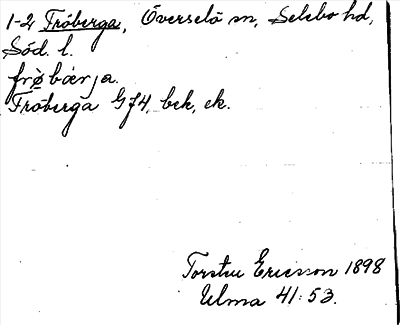 1-2 Fröberga, Överselö sn, Selebo hd,
Söd. l.
frø̀bær̀ja.
Fröberga GJ4, bek, ek.
Torsten Ericson 1898
Ulma 41:53.